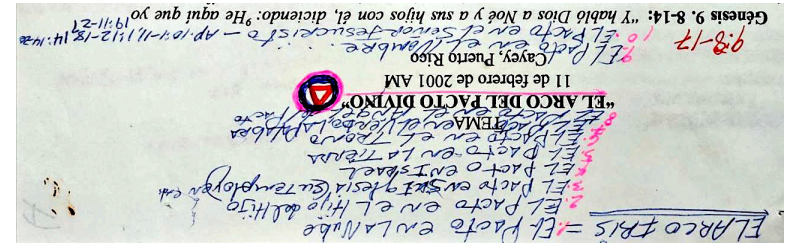 EL ARCO IRIS = 1. EL PACTO EN LA NUBE
2. EL PACTO EN EL Hijo del Hijo
3. EL PACTO EN SU Iglesia (Su Templo) en
EL PACTO EN Israel
EL PACTO EN LA TIERRA
EL PACTO EN EL TRONO
EL PACTO EN EL Verbo, LA PALABRA
TEMA
8. EL PACTO EN EL Angel del Pacto
"EL ARCO DEL PACTO DIVINO"
11 de febrero de 2001 AM
Cayey, Puerto Rico
9. EL PACTO EN EL NOMBRE...
10. EL PACTO EN EL SEÑOR JESUCRISTO – Ap. 10:1-11; 1:12-18; 14:14-20
9:8-17 19:11-21
Génesis 9. 9:8-14: "Y habló Dios a Noé y a sus hijos con él, diciendo: ⁹He aquí que yo